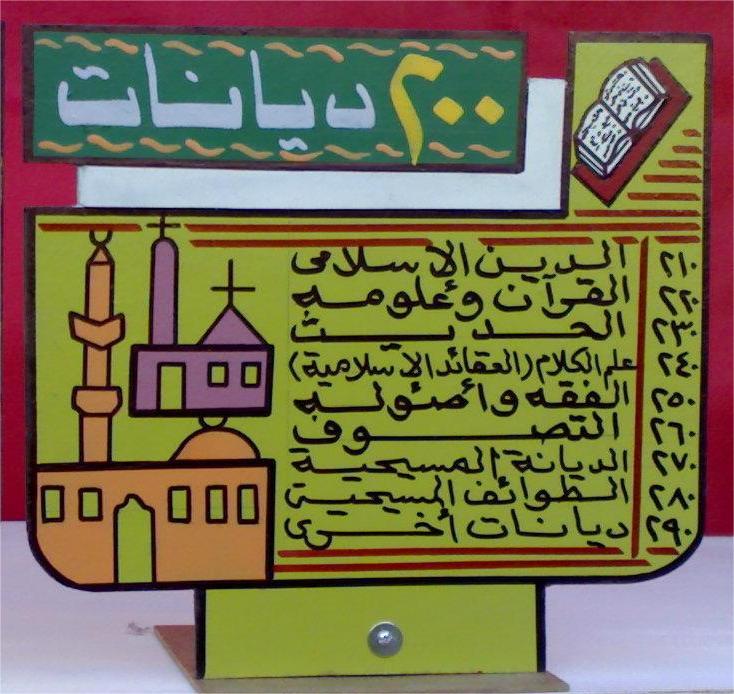 ٢٠٠ ديانات
٢١٠ الدين الإسلامى
٢٢٠ القرآن وعلومه
٢٣٠ الحديث
٢٤٠ علم الكلام (العقائد الاسلامية)
٢٥٠ الفقه وأصوله
٢٦٠ التصوف
٢٧٠ الديانة المسيحية
٢٨٠ الطوائف المسيحية
٢٩٠ ديانات أخرى